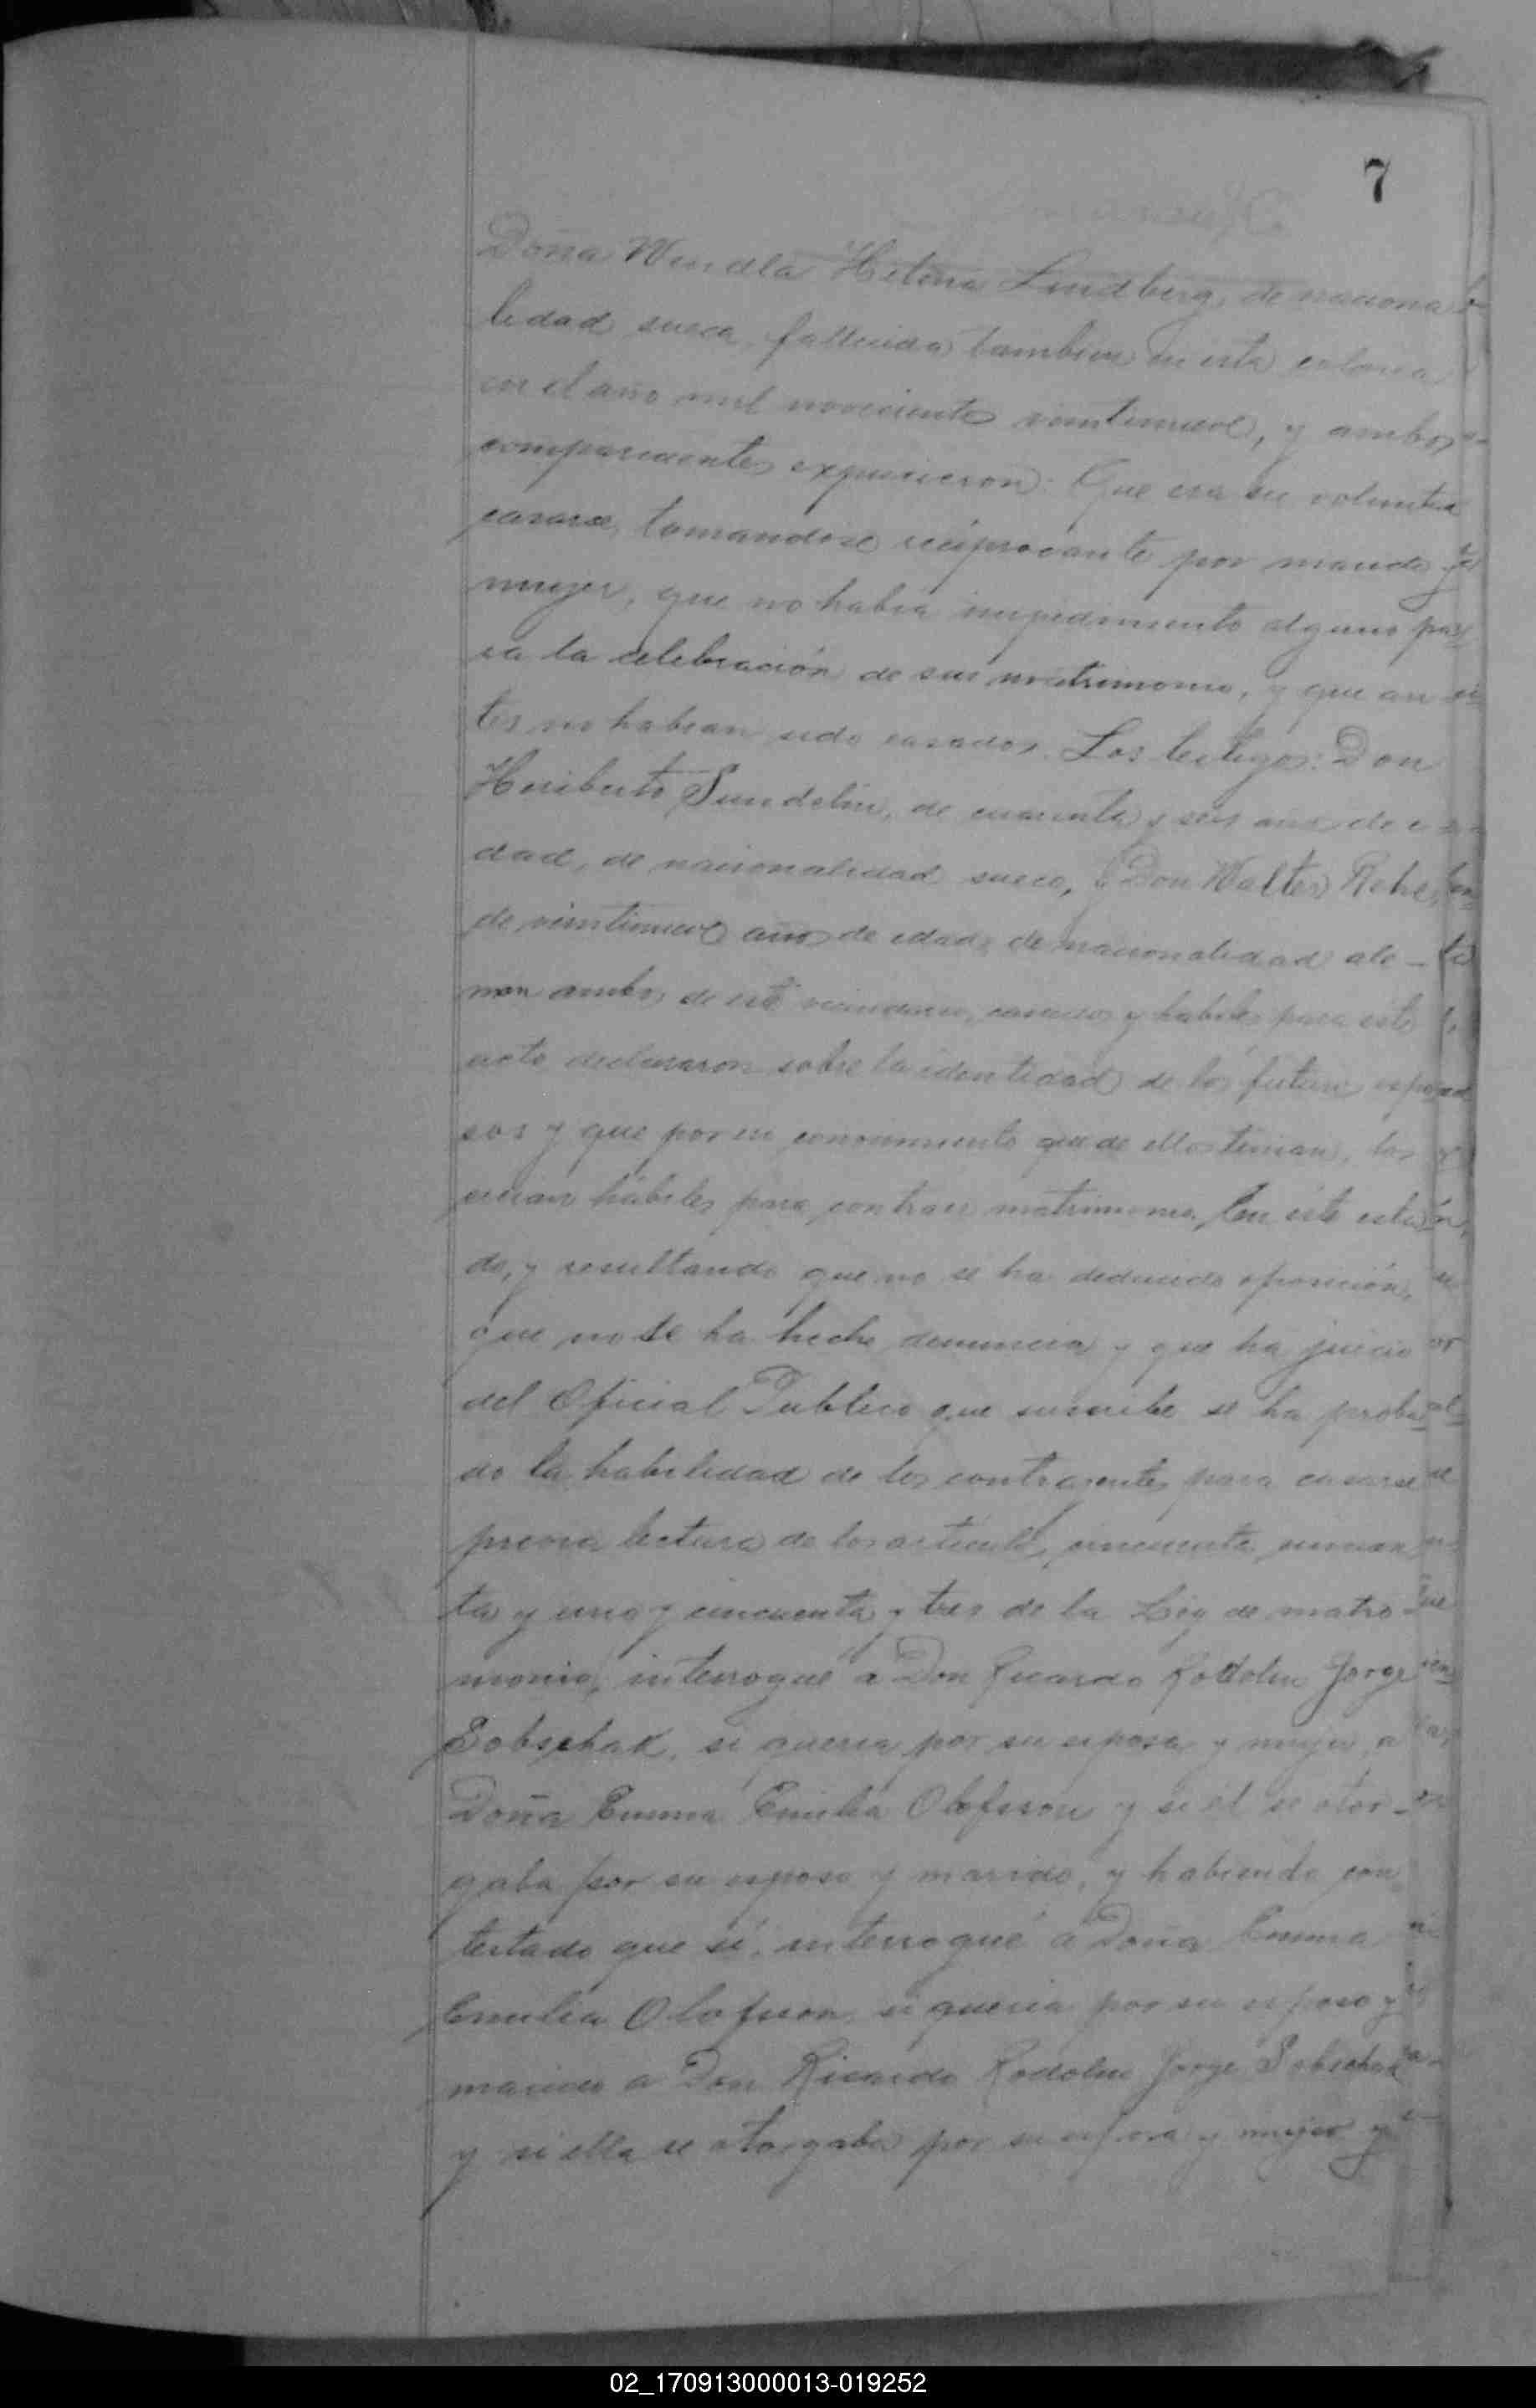 7
Doña Wendla Helena Lindberg, de naciona
lidad sueca, fallecida tambien en esta colonia
en el año mil novecientos veintinueve, y ambos
comparecientes expusieron: Que era su voluntad
casarse, tomandose reciprocante por marido y
mujer, que no habia impedimento alguno pa
ra la celebración de su matrimonio, y que an
tes no habian sido casados. Los testigos: Don
Heriberto Sundelin, de cuarenta y seis años de e
dad, de nacionalidad sueco, y Don Walter Rehe,
de veintinueve años de edad, de nacionalidad ale-
man ambos de este vecindario, casados y habiles para este
acto declararon sobre la identidad de los futuros espo
sos y que por en conocimiento que de ellos tenian, los
creian hábiles para contraer matrimonio. En este esta
do, y resultando que no se ha deducido oposición,
que no se ha hecho denuncia y que ha juicio
del Oficial Publico que suscribe se ha proba
do la habilidad de los contrayentes para casarse
previa lectura de los articulos, cincuenta, cincuen
ta y uno y cincuenta y tres de la Ley de matri-
monio, interrogué a Don Ricardo Rodolfo Jorge
Sobschak, si queria por su esposa y mujer, a
Doña Emma Emilia Olofsson y si él se otor-
gaba por su esposo y marido, y habiendo con
testado que sí, interrogué a Doña Emma
Emilia Olofsson, si queria por su esposo y
marido a Don Ricardo Rodolfo Jorge Sobschak
y si ella se otorgaba por su esposa y mujer y
02_170913000013-019252